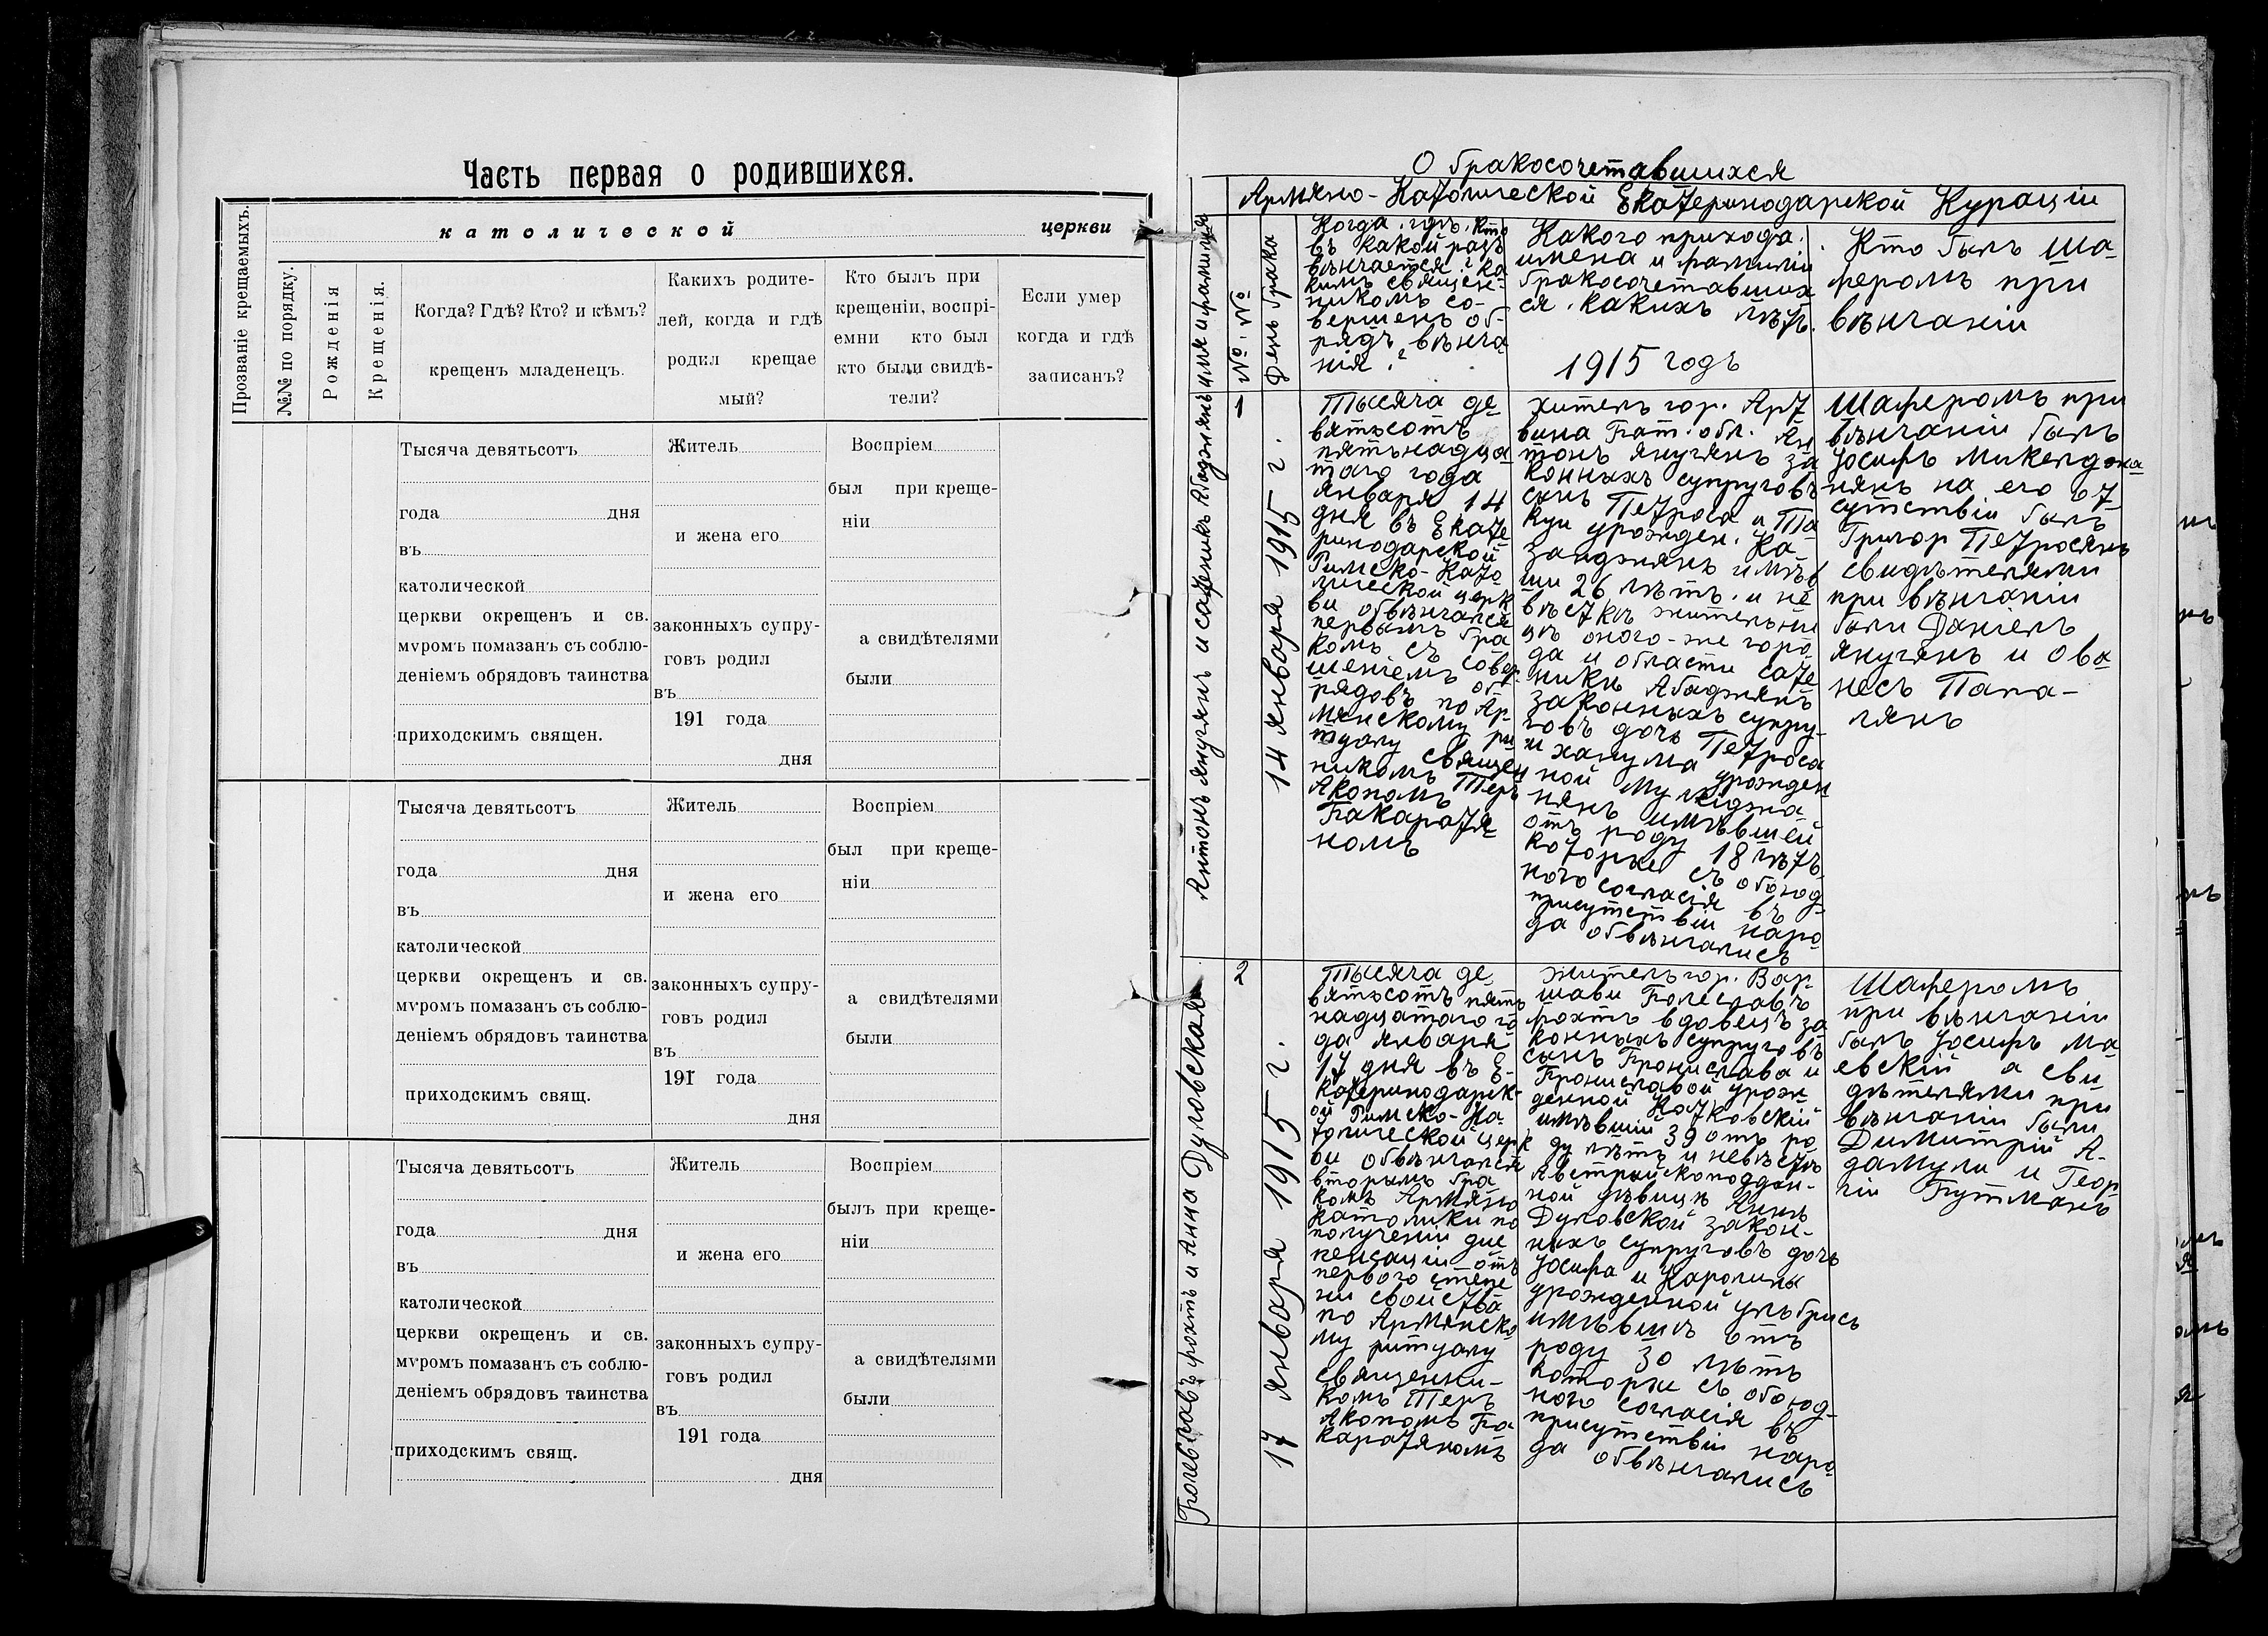 Часть первая о родившихся.
Прозваніе крещаемыхъ.
№№ по порядку.
Рожденія
Крещенія.
католической церкви
Когда? Гдѣ? Кто? и кѣмъ?
крещенъ младенецъ.
Каихъ родите-
лей, когда и гдѣ
родил крещае
мый?
Кто былъ при
крещеніи, воспрі-
емни кто был
кто были свидѣ-
тели?
Если умер
когда и гдѣ
записанъ?
Тысяча девятьсотъ
года дня
въ
католической
церкви окрещенъ и св.
мѵромъ помазанъ съ соблю-
деніемъ обрядовъ таинства
приходскимъ священ.
Житель
и жена его
законныхъ супру-
говъ родил
въ
191 года
дня
Воспріем
был при креще-
ніи
а свидѣтелями
были
Тысяча девятьсотъ
года дня
въ
католической
церкви окрещенъ и св.
мѵромъ помазанъ съ соблю-
деніемъ обрядовъ таинства
приходскимъ свящ.
Житель
и жена его
законныхъ супру-
говъ родил
въ
191 года
дня
Воспріем
был при креще-
ніи
а свидѣтелями
были
Тысяча девятьсотъ
года дня
въ
католической
церкви окрещенъ и св.
мѵромъ помазанъ съ соблю-
деніемъ обрядовъ таинства
приходскимъ свящ.
Житель
и жена его
законныхъ супру-
говъ родил
въ
191 года
дня
Воспріем
былъ при креще-
ніи
а свидѣтелями
были
О бракосочетавшихся
Армяно-Католической Екатеринодарской Кураціи
имя и фамилия
№. №
День брака
Когда. гдѣ. кто
въ какой разъ
вѣнчается? ка
кимъ священ-
никомъ со-
вершенъ об-
рядъ вѣнча
нія?
Какого прихода.
имена и фамиліи
бракосочетавших
ся. какихъ лѣтъ.
1915 годъ
Кто былъ ша-
феромъ при
вѣнчаніи
Антонъ Янучянъ и Сатеникъ Абаджянъ
1
14 января 1915 г.
Тысяча де
вятьсотъ
пятьнадца
таго года
Января 14
дня въ Екате
ринодарской
Римско-Като
лической церк
ви обвѣнчался
первымъ бра
комъ съ
совер
шеніемъ об
рядовъ по Ар-
мянскому ри
туалу священ
никомъ Теръ
Акопомъ
Бакаратя
номъ
житель гор. Арт
вина Бат. обл. Ан
тонъ Янучянъ за
конныхъ супруговъ
сынъ Петроса и Та
куи урожден. Ка
занджянъ имѣв
ши 26 лѣтъ. и не
вѣсткѣ жительни
цѣ оного-же горо
да и области Сате
никъ Абаджянъ
законныхъ супру-
говъ дочь Петроса
и Ханума урожден
ной Мулкіджа
нянъ имѣвшей
отъ роду 18 лѣтъ.
которые съ обоюд-
ного согласія въ
присутствіи наро
да обвѣнчались
Шаферомъ при
вѣнчаніи былъ
Іосифъ Микелджа
нянъ на его от
сутствіи былъ
Григор Петросянъ
свидѣтелями
при вѣнчаніи
были Даніелъ
Янучянъ и Ова
несъ Папа-
лянъ
Болеславъ Фохтъ и Анна Дуловская
2
17 января 1915 г.
Тысяча де
вятьсотъ пять
надцатаго го
да Января
17 дня въ Е-
катеринодарск-
ой Римско-Ка-
толической церк
ви обвѣнчался
вторымъ бра
комъ Армяно
католики по
полученіи дис
пенсаціи отъ
первого степе
ни свойства
по Армянско
му ритуалу
священни-
комъ Теръ
Акопомъ Ба-
каратяномъ
житель гор. Вар-
шавы Болеславъ
Фохтъ вдовецъ за
конныхъ супруговъ
сынъ Бронислава и
Брониславой урож
денной Катковскій
имѣвшій 39 отъ ро
ду лѣтъ и невѣстѣ
Австрійскоподдан-
ной дѣвицѣ Аннѣ
Дуловской закон-
ныхъ супруговъ дочь
Іосифа и Каролины
урожденной Ульбрисъ
имѣвшихъ отъ
роду 30 лѣтъ
которые съ обоюд-
ного согласія въ
присутствіи наро
да обвѣнчались
Шаферомъ
при вѣнчаніи
былъ Іосифъ Ма
евскій а сви
дѣтелями при
вѣнчаніи были
Димитрій А-
дамули и Геор
гіи Бутманъ